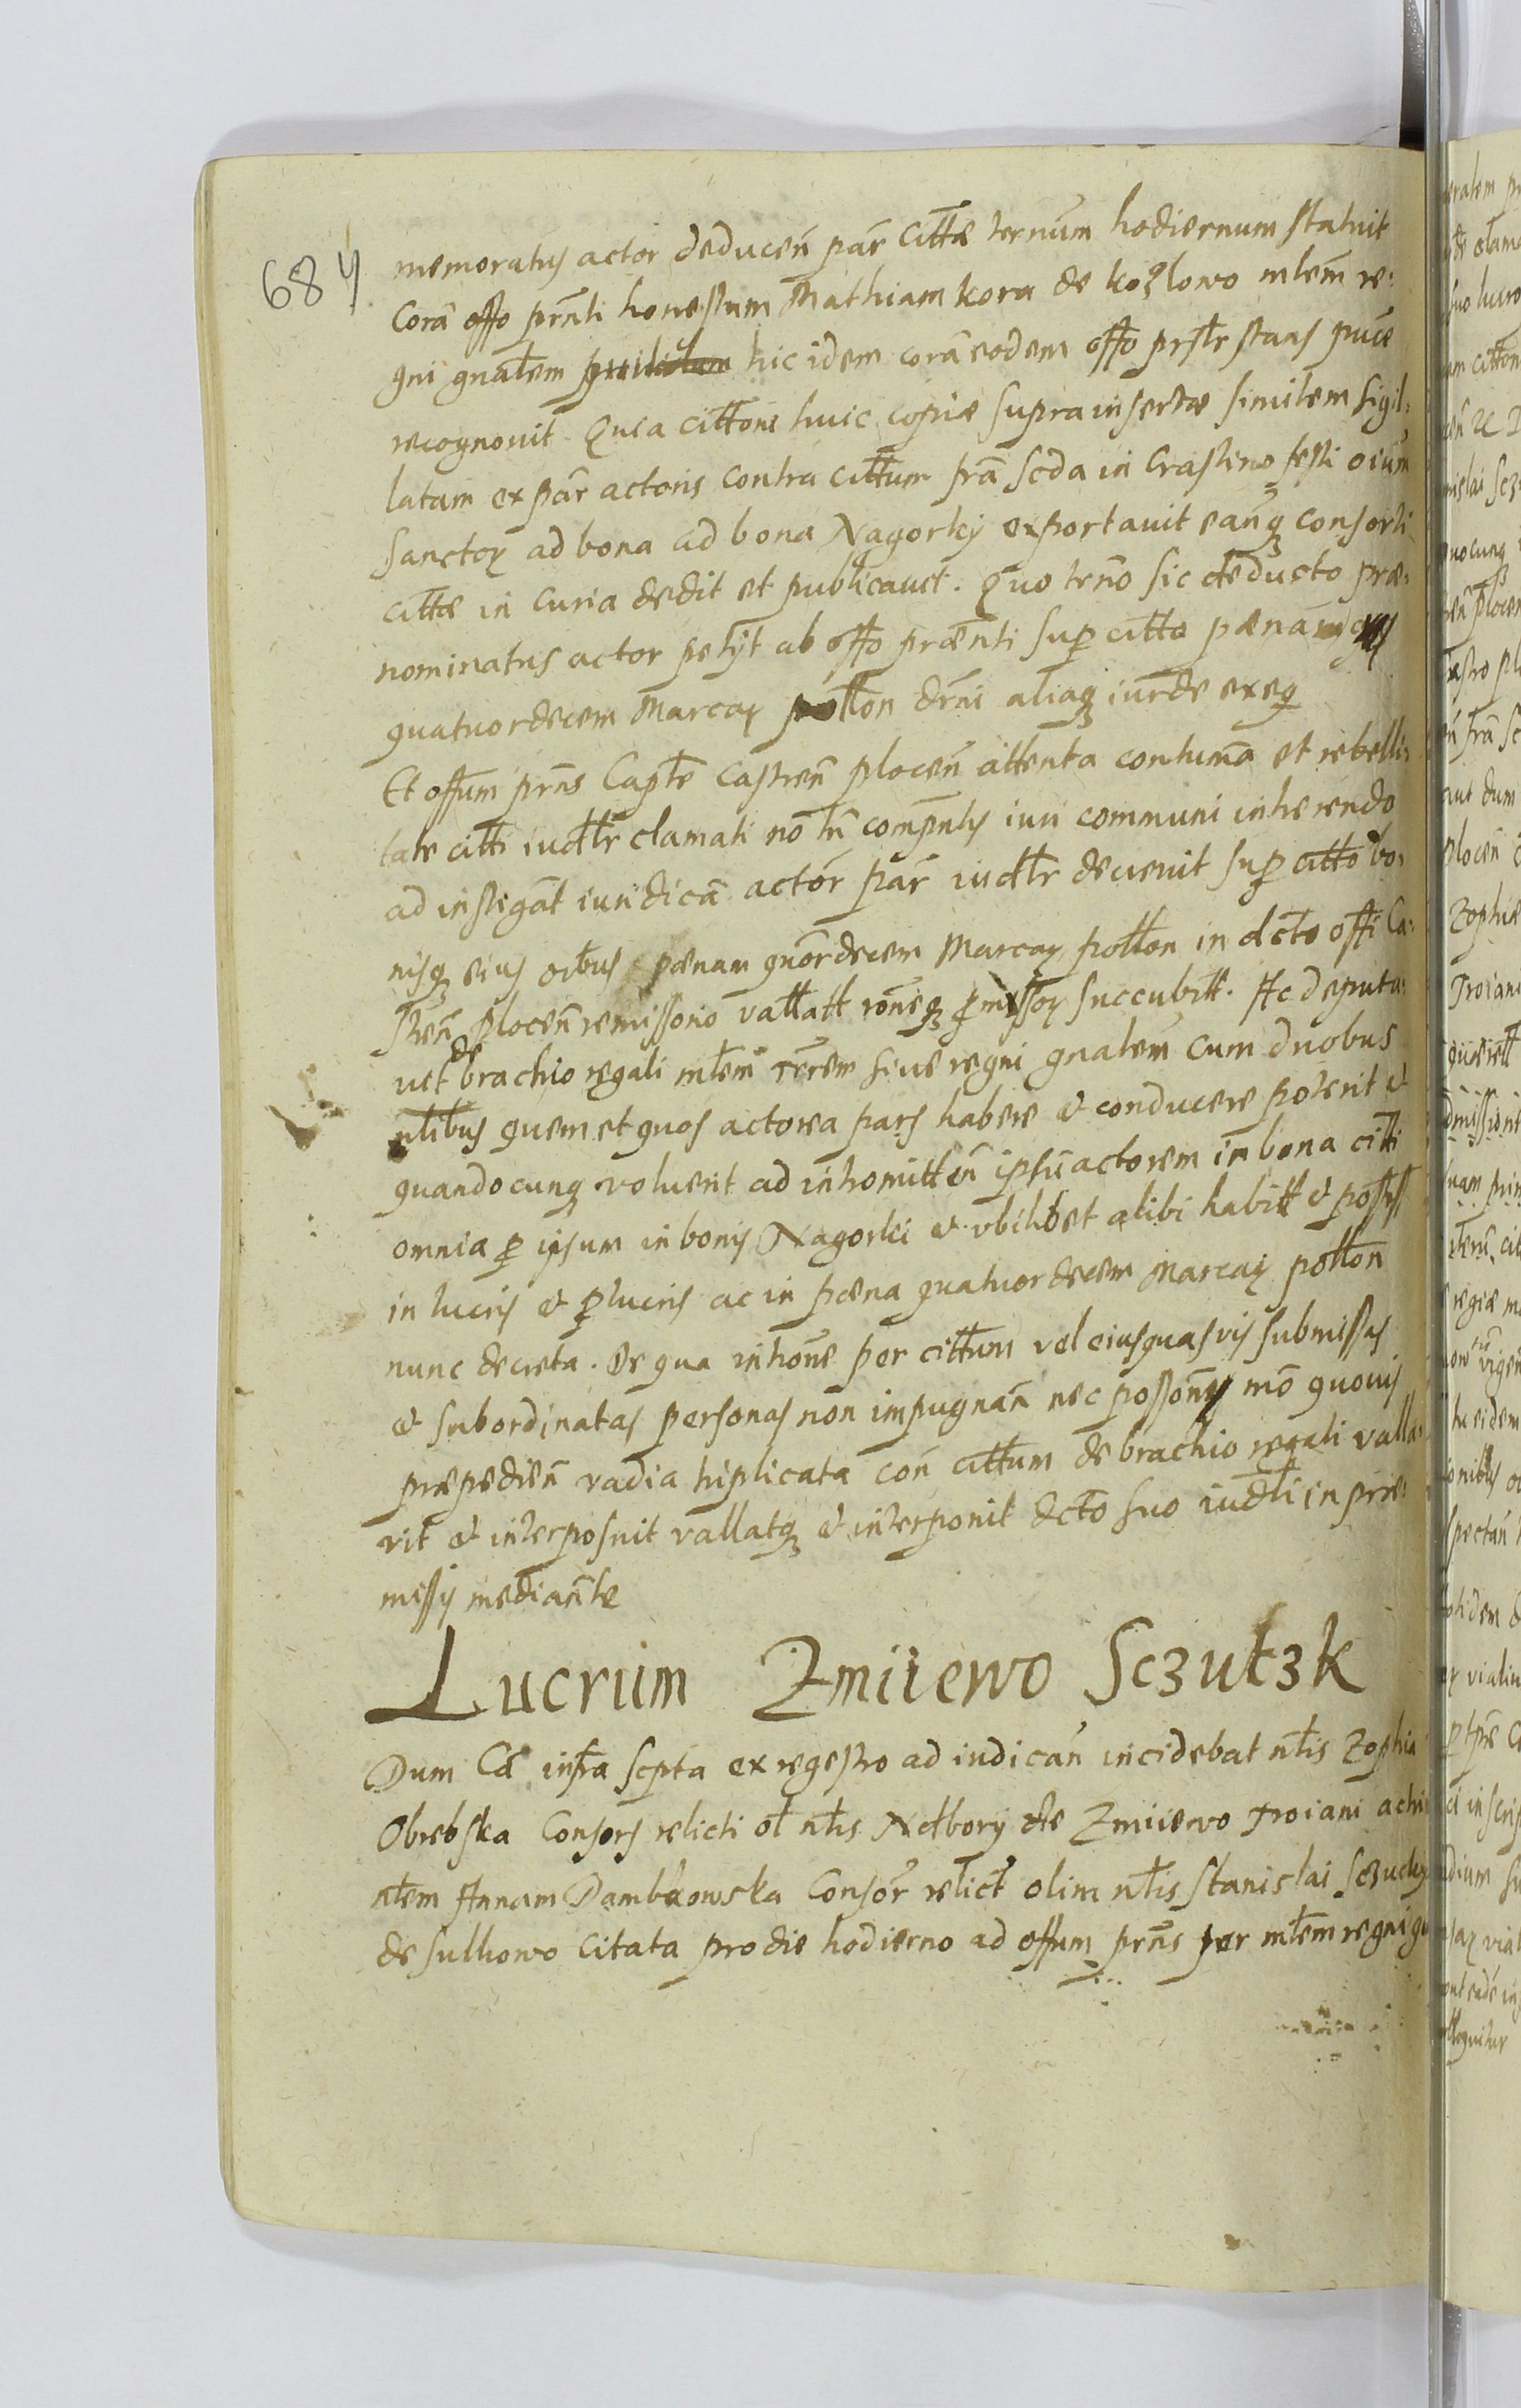 684
memoratus actor deducen̄ par̄ Citt̄æ ternūm hodiernum statuit
Corā offo prn̄ti honestum Mathiam kora de kozlowo mlēm re-
gni gnālem hic idem corā eodem offo prstr̄ staas puce
recognouit Quia citt̄one huic copiæ supra insertæ similem sigil-
latam ex par̄ actoris contra citt̄um frā scda in Crastino festi oium
Sanctoꝝ ad bona ad bona Nagorky exportauit eanꝗ consorti
citt̄æ in Curia dedit et publicauit. Quo trn̄o sic deducto præ-
nominatus actor petijt ab offo præn̄ti super citt̄o pænam
quatuordecem Marcaꝝ pott̄on drn̄i aliaꝗ iur̄de exeq
Et offum prn̄s Capt̄e Castren̄ plocen̄ attenta contuma̅ et rebelli-
tate citt̄i iudtr̄ clamati no̅ tn̄ compn̄tis iuri communi inherendo
ad instigat̄ iuridicā actor̄ par̄ iudtr̄ decreuit sup citt̄o bo-
nisꝗ eius oībus pænam quōrdecem Marcaꝝ pott̄on in dcto offi Ca-
stren̄ plocen̄ remissorio vallatt̄ rōneꝗ pmissoꝝ succubitt̄. Ac deputa-
uit de brachio regali mlēm terrem siue regni gnalem cum duobus
nlībus quem et quos actorea pars habere et conducere poterit et
quandocunꝗ voluerit ad intromitten̄ ipsū actorem in bona citt̄i
omnia p ipsum in bonis Nagorki et vbilibet alibi habitt̄ et possess
in lucris et plucris ac in pæna quatuordecem Marcaꝝ pott̄on
nunc decreta. De qua intrōne per citt̄um vel eius quasvis submissas
et subordinatas personas non impugnan̄ nec possōnes mō quouis
præpedien̄ vadia triplicata con̄ citt̄um de brachio regali valla-
vit et interposuit vallatꝗ et interponit dcto suo iudt̄i in præ-
missis mediante
Lucrum Zmiiewo Sczutzk
Dum Cā infra scpta ex regestro ad iudican̄ incidebat nt̄is Zophia
Obrebska Consors relicti ol nt̄is Ndbory de Zmiiewo Troiani actrix
nt̄em Annam Dambkowska Consor̄ relict̄ olim nt̄is Stanislai Sczucky
de Sulkowo Citata pro die hodierno ad offum prn̄s per mlēm regni